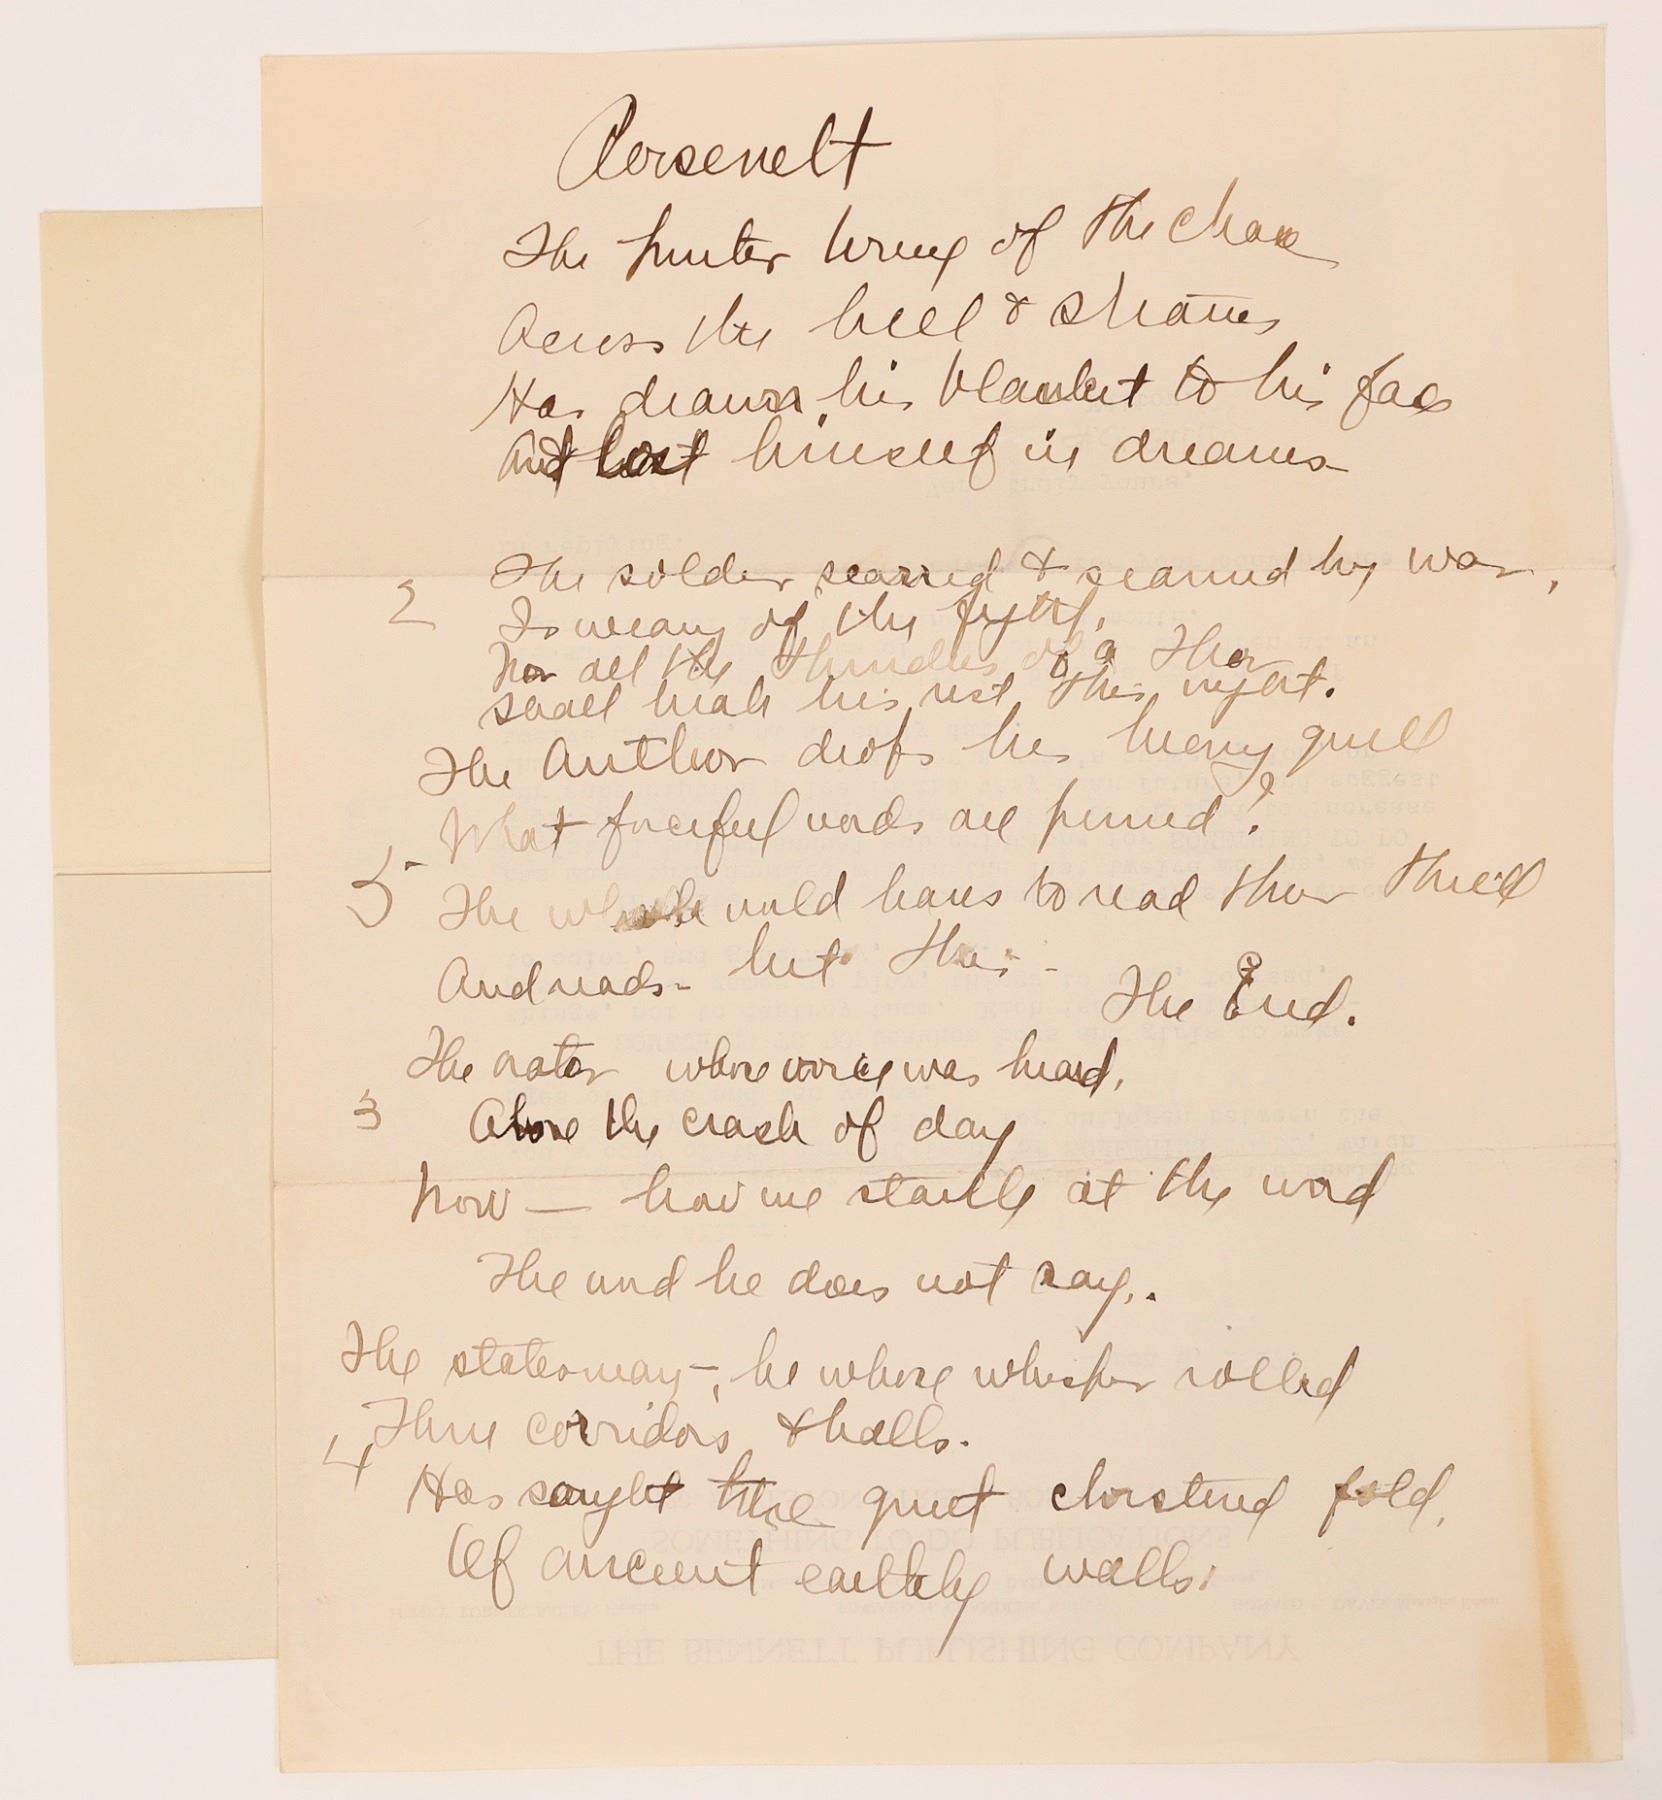 Roosevelt
The hunter wrung of the chase
Across the hill & streams
Has drawn his blanket to his face
And lost himself in dreams
2
The soldier scarred & seamed by war,
Is weary of the fight,
Nor all the thunders of a Thor
Shall break his rest this night.
The Author drops his heavy quill
What forceful words are penned!
5
The whole world leans to read their thrill
And reads - but this -
The End.
The orator whose voice was heard,
3
Above the crash of day
Now — how we startle at the word
The word he does not say.
The statesman -, he whose whisper rolled
Thru corridors & halls.
4
Has sought the quiet cloistered fold,
Of ancient earthly walls.
SOMETHING TO DO PUBLICATIONS
THE BENNETT PUBLISHING COMPANY